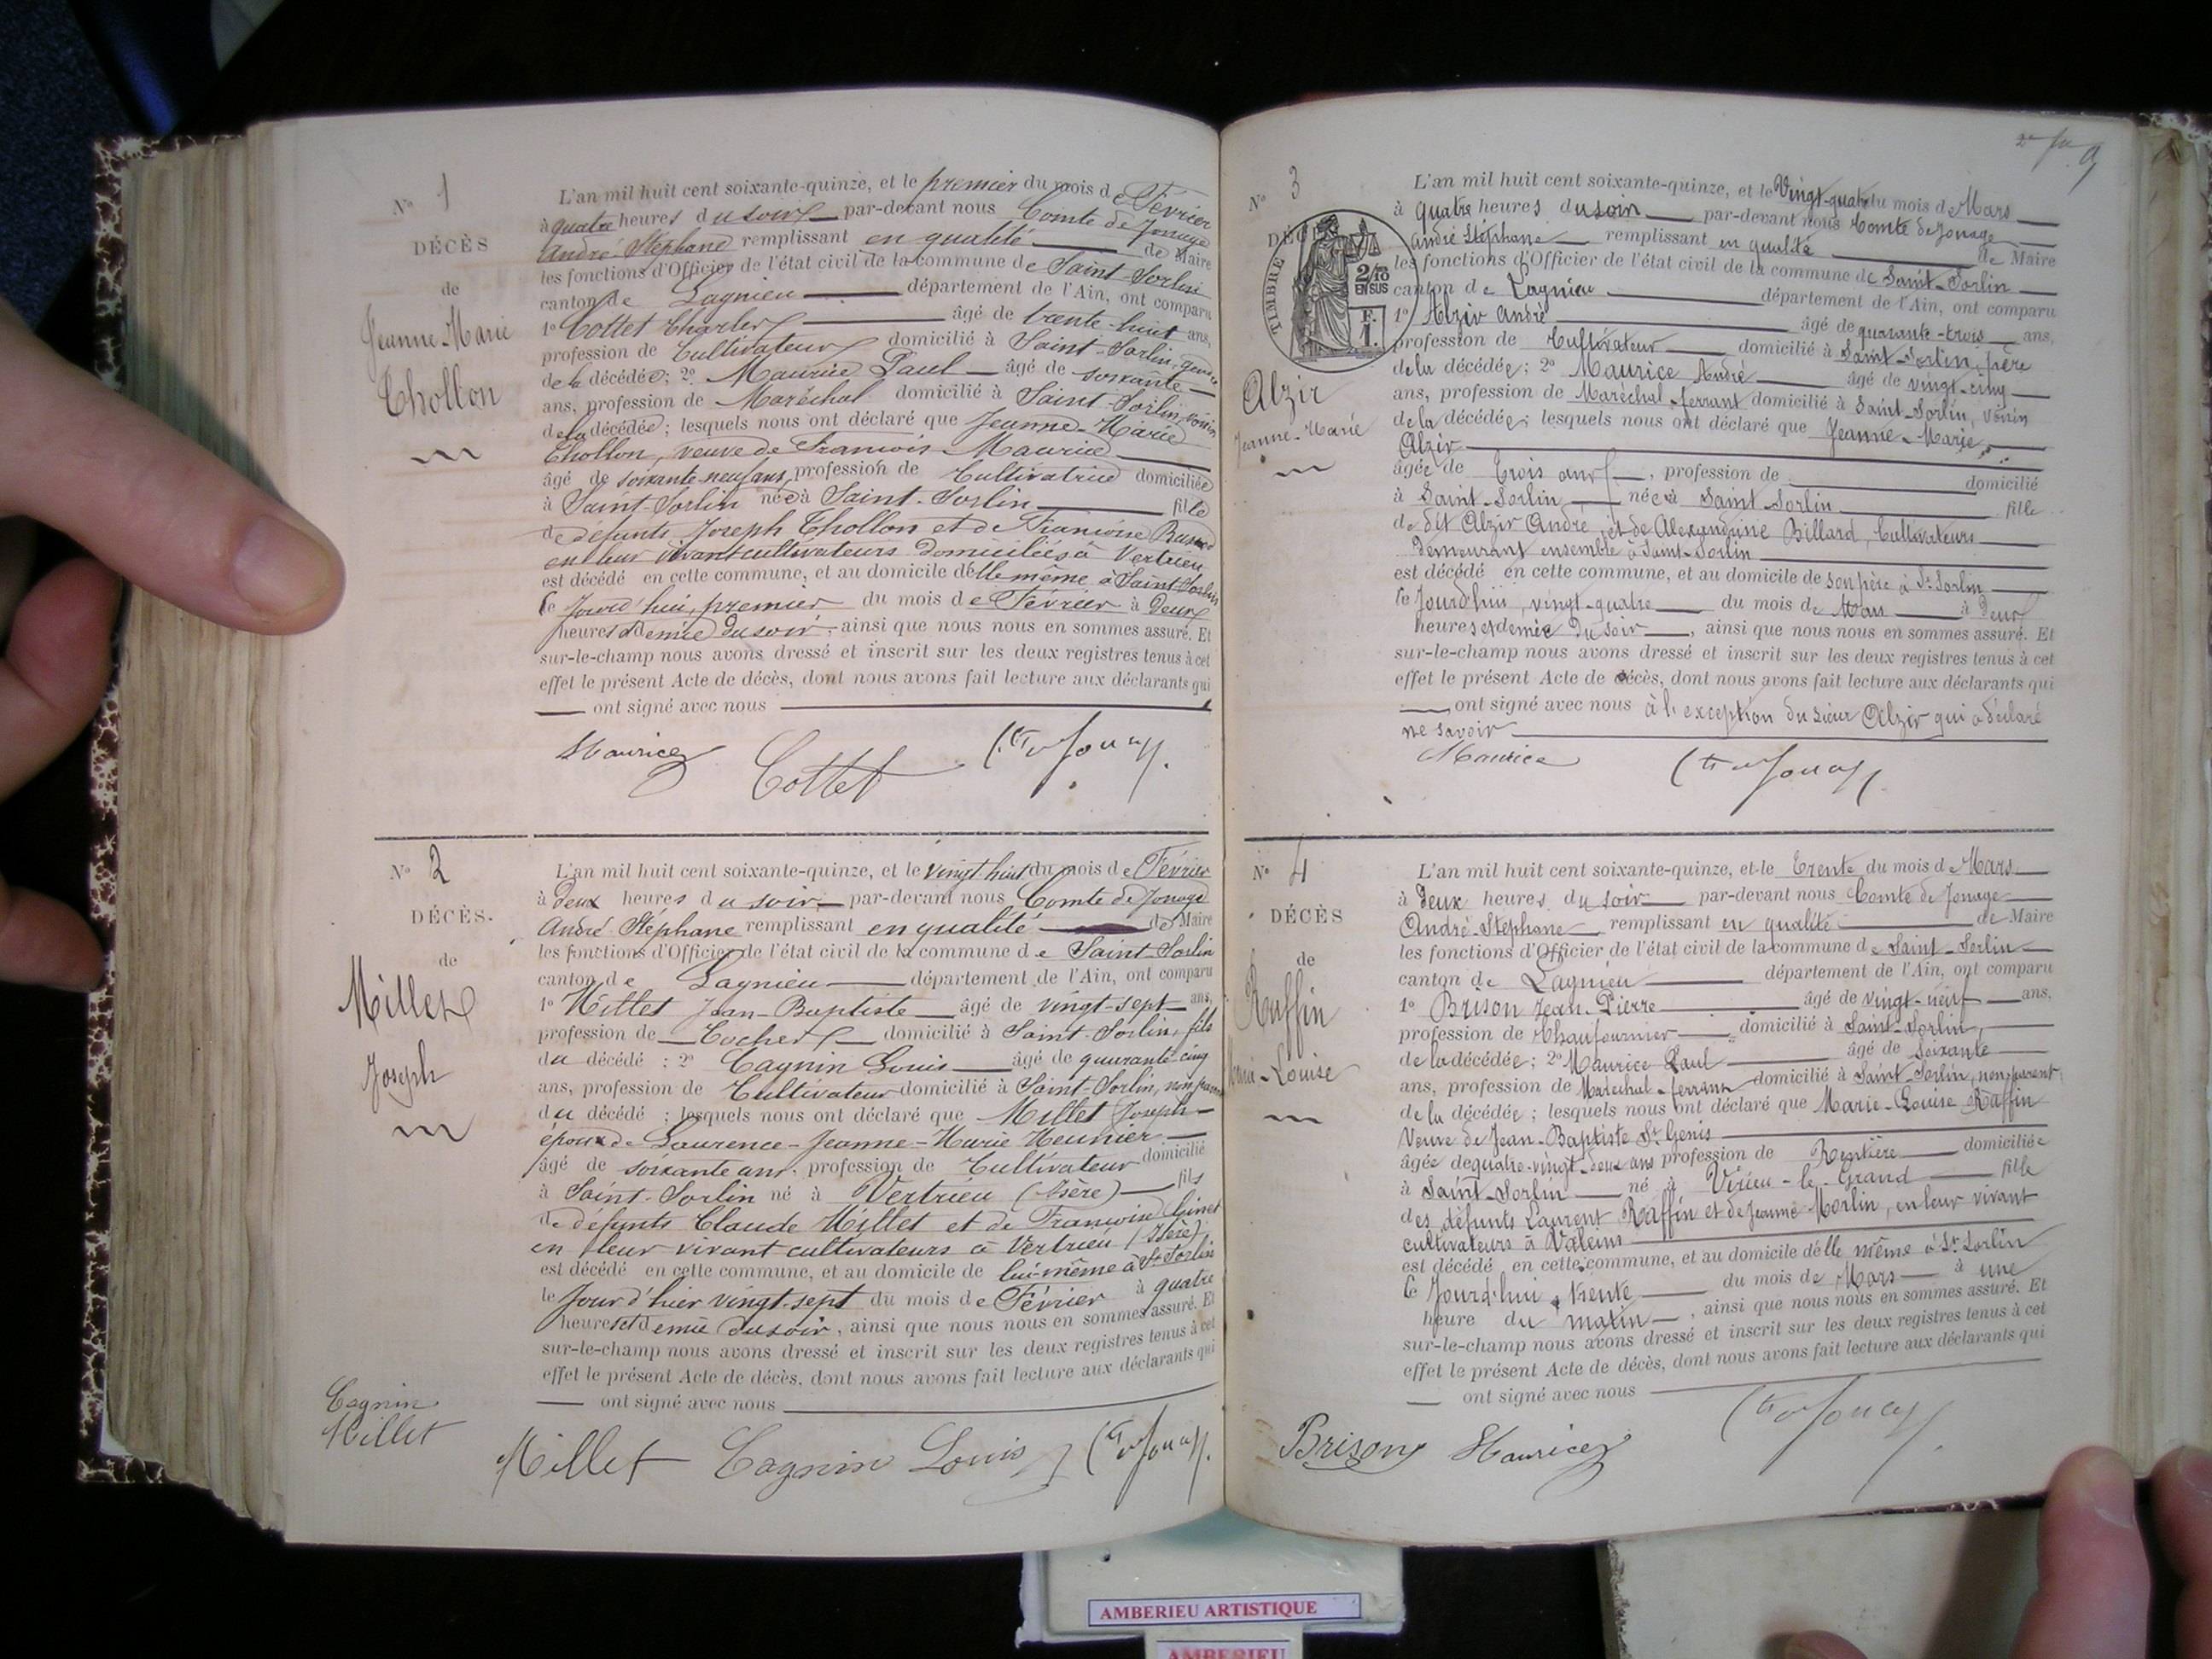 N° 1
DÉCÈS
de
Jeanne-Marie
Chollon
L'an mil huit cent soixante-quinze, et le premier du mois de Février
à quatre heures du soir par-devant nous Comte de Jonage
André Stéphane remplissant en qualité de Maire
les fonctions d'Officier de l'état civil de la commune de Saint-Sorlin
canton de Lagnieu département de l'Ain, ont comparu
1° Cottet Charles âgé de trente-huit ans,
profession de Cultivateur domicilié à Saint-Sorlin, gendre
de la décédée; 2° Maurice Paul âgé de soixante
ans, profession de Maréchal domicilié à Saint-Sorlin, voisin
de la décédée; lesquels nous ont déclaré que Jeanne-Marie
Chollon, veuve de François Maurice
âgé de soixante-neuf ans, profession de Cultivatrice domiciliée
à Saint-Sorlin née à Saint-Sorlin fille
de défunts Joseph Chollon et de Françoise
en leur vivant cultivateurs domiciliés à Vertrieu
est décédé en cette commune, et au domicile d'elle même à Saint-Sorlin
le Jourd'hui, premier du mois de Février à Deux
heures et demie du soir, ainsi que nous nous en sommes assuré. Et
sur-le-champ nous avons dressé et inscrit sur les deux registres tenus à cet
effet le présent Acte de décès, dont nous avons fait lecture aux déclarants qui
ont signé avec nous
Maurice Cottet Cte de Jonage
N° 2
DÉCÈS.
de
Millet
Joseph
L'an mil huit cent soixante-quinze, et le vingt huit du mois de Février
à Deux heures du soir par-devant nous Comte de Jonage
André Stéphane remplissant en qualité de Maire
les fonctions d'Officier de l'état civil de la commune de Saint-Sorlin
canton de Lagnieu département de l'Ain, ont comparu
1° Millet Jean-Baptiste âgé de vingt-sept ans,
profession de Cocher domicilié à Saint-Sorlin, fils
du décédé; 2° Cagnin Louis âgé de quarante-cinq
ans, profession de Cultivateur domicilié à Saint-Sorlin, non parent
du décédé; lesquels nous ont déclaré que Millet Joseph
époux de Laurence-Jeanne-Marie Meunier
âgé de soixante ans, profession de Cultivateur domicilié
à Saint-Sorlin né à Vertrieu (Isère) fils
de défunts Claude Millet et de Françoise Ginet
en leur vivant cultivateurs à Vertrieu (Isère)
est décédé en cette commune, et au domicile de lui-même à St Sorlin
le Jour d'hier vingt-sept du mois de Février à quatre
heures et demie du soir, ainsi que nous nous en sommes assuré. Et
sur-le-champ nous avons dressé et inscrit sur les deux registres tenus à cet
effet le présent Acte de décès, dont nous avons fait lecture aux déclarants qui
ont signé avec nous
Cagnin
Millet
Millet Cagnin Louis Cte de Jonage
N° 3
DÉCÈS
TIMBRE
2/10
EN SUS
F.
1.
Alzir
Jeanne-Marie
L'an mil huit cent soixante-quinze, et le Vingt-quatre du mois de Mars
à quatre heures du soir par-devant nous Comte de Jonage
André Stéphane remplissant en qualité de Maire
les fonctions d'Officier de l'état civil de la commune de Saint-Sorlin
canton de Lagnieu département de l'Ain, ont comparu
1° Alzir André âgé de quarante-trois ans,
profession de Cultivateur domicilié à Saint-Sorlin, père
de la décédée; 2° Maurice André âgé de vingt-cinq
ans, profession de Maréchal-ferrant domicilié à Saint-Sorlin, voisin
de la décédée; lesquels nous ont déclaré que Jeanne-Marie
Alzir
âgée de trois ans, profession de domicilié
à Saint-Sorlin née à Saint-Sorlin fille
de dit Alzir André, et de Alexandrine Billard, Cultivateurs
demeurant ensemble à Saint-Sorlin
est décédé en cette commune, et au domicile de son père à St Sorlin
le Jourd'hui, vingt-quatre du mois de Mars à Deux
heures et demie du soir, ainsi que nous nous en sommes assuré. Et
sur-le-champ nous avons dressé et inscrit sur les deux registres tenus à cet
effet le présent Acte de décès, dont nous avons fait lecture aux déclarants qui
ont signé avec nous à l'exception du sieur Alzir qui a déclaré
ne savoir
Maurice Cte de Jonage
N° 4
DÉCÈS
de
Raffin
Marie-Louise
L'an mil huit cent soixante-quinze, et le Trente du mois de Mars
à Deux heures du soir par-devant nous Comte de Jonage
André-Stéphane remplissant en qualité de Maire
les fonctions d'Officier de l'état civil de la commune de Saint-Sorlin
canton de Lagnieu département de l'Ain, ont comparu
1° Brison Jean-Pierre âgé de vingt-neuf ans,
profession de Chaufournier domicilié à Saint-Sorlin,
de la décédée; 2° Maurice Paul âgé de soixante
ans, profession de Maréchal-ferrant domicilié à Saint-Sorlin, non parent
de la décédée; lesquels nous ont déclaré que Marie-Louise Raffin
Veuve de Jean-Baptiste St Genis
âgée de quatre-vingt-deux ans profession de Rentière domiciliée
à Saint-Sorlin né à Virieu-le-Grand fille
des défunts Laurent Raffin et de Jeanne Morlin, en leur vivant
cultivateurs à
est décédé en cette commune, et au domicile d'elle même à St Sorlin
le Jourd'hui, trente du mois de Mars à une
heure du matin, ainsi que nous nous en sommes assuré. Et
sur-le-champ nous avons dressé et inscrit sur les deux registres tenus à cet
effet le présent Acte de décès, dont nous avons fait lecture aux déclarants qui
ont signé avec nous
Brison Maurice Cte de Jonage
AMBERIEU ARTISTIQUE
AMBERIEU